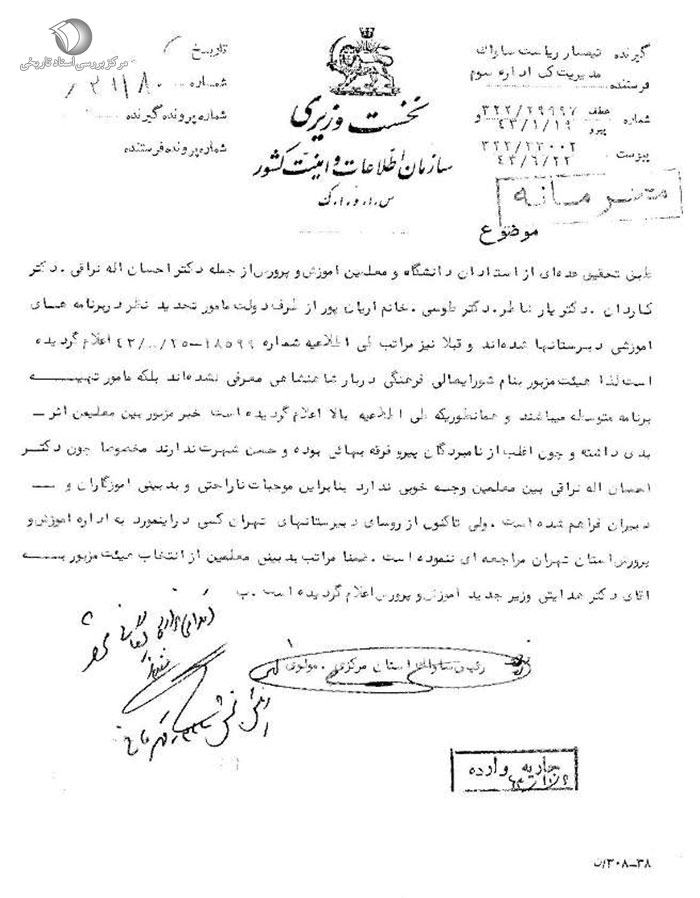 مرکز بررسی اسناد تاریخی
گیرنده تیمسار ریاست ساواك
مدیریت کل اداره سوم
فرستنده
شماره عطف ۳۲۲/۲۹۹۹۷
پیرو ۴۳/۱/۱۹ و
۳۲۲/۲۲۰۰۲
پیوست ۴۳/۶/۲۲
تاریخ
شماره ۳۱۱۸۰/
شماره پرونده گیرنده
شماره پرونده فرستنده
نخست وزیری
سازمان اطلاعات و امنیت کشور
س.ا.و.ا.ك
محرمانه
موضوع
طبق تحقیق عده‌ای از استادان دانشگاه و معلمین اموزش و پرورش از جمله دکتر احسان اله نراقی . دکتر
کاردان . دکتر یار شاطر . دکتر طوسی . خانم اریان پور از طرف دولت مامور تجدید نظر در برنامه های
اموزشی دبیرستانها شده‌اند و قبلا نیز مراتب طی اطلاعیه شماره ۱۸۵۹۹-۲۵/۰۰/۴۳ اعلام گردیده
است لذا هیئت مزبور بنام شورایعالی فرهنگی دربار شاهنشاهی معرفی نشده‌اند بلکه مامور تهیـــه
برنامه متوسطه میباشند و همانطوریکه طی اطلاعیه بالا اعلام گردیده است خبر مزبور بین معلمین اثر ــ
بدی داشته و چون اغلب از نامبردگان پیرو فرقه بهائی بوده و حسن شهرت ندارند مخصوصا چون دکتــر
احسان اله نراقی بین معلمین وجهه خوبی ندارد بنابراین موجبات ناراحتی و بدبینی اموزگاران و ــ
دبیران فراهم شده است . ولی تاکنون از روسای دبیرستانهای تهران کسی در اینمورد به اداره اموزش و
پرورش استان تهران مراجعه ای ننموده است . ضمنا مراتب بدبینی معلمین از انتخاب هیئت مزبور بــه
اقای دکتر هدایتی وزیر جدید آموزش و پرورش اعلام گردیده است . ب
رئیس ساواك استان مرکزی . مولوی
جاریه وارده
۳۸-۳۰۸/ن